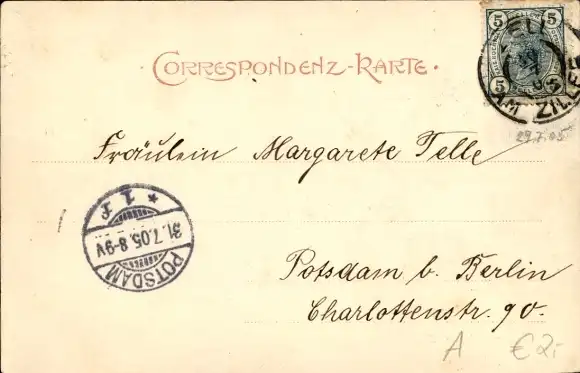 5 5
5 5
ZELL
AM ZILLER
29.7.05
· CORRESPONDENZ-KARTE ·
Fräulein Margarete Telle
* 1 F
31.7.05.8-9V
POTSDAM
Potsdam b. Berlin
Charlottenstr. 90.
A €2,-